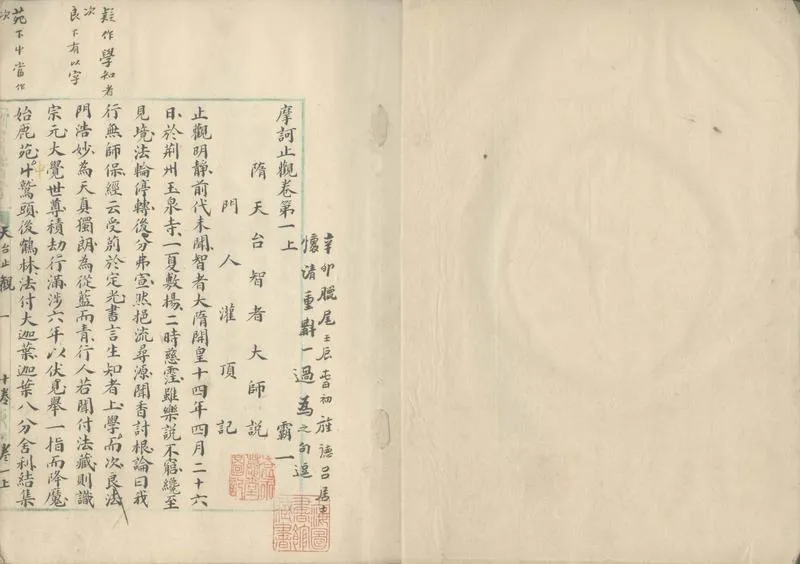 辛卯臘尾壬辰春初旌德呂居士
懷清重斠一過為之句逗
摩訶止觀卷第一上 霸一
隋天台智者大師說
門人灌頂記
止觀明靜前代未聞智者大隋開皇十四年四月二十六
日於荊州玉泉寺一夏敷揚二時慈霔雖樂說不窮纔至
見境法輪停轉後分弗宣然挹流尋源聞香討根論曰我
行無師保經云受莂於定光書言生知者上學而次良法
門浩妙為天真獨朗為從藍而青行人若聞付法藏則識
宗元大覺世尊積劫行滿涉六年以伏見舉一指而降魔
始鹿苑中鷲頭後鶴林法付大迦葉迦葉八分舍利結集
疑作學知者
次
良下有以字
苑下中當作
次
天台止觀一 十卷 卷一上